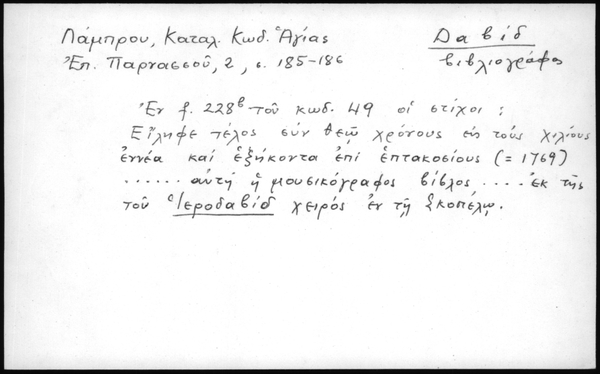 Λάμπρου, Καταλ. Κωδ. Ἁγίας
Ἐπ. Παρνασσοῦ, 2, σ. 185-186
Δαβίδ
βιβλιογράφος
Ἐν f. 228β τοῦ κωδ. 49 οἱ στίχοι:
Εἴληφε τέλος σύν θεῷ χρόνους εἰς τούς χιλίους
ἐννέα καί ἑξήκοντα ἐπί ἑπτακοσίους (= 1769)
...... αὐτή ἡ μουσικόγραφος βίβλος .... ἐκ τῆς
τοῦ Ἱεροδαβίδ χειρός ἐν τῇ Σκοπέλῳ.